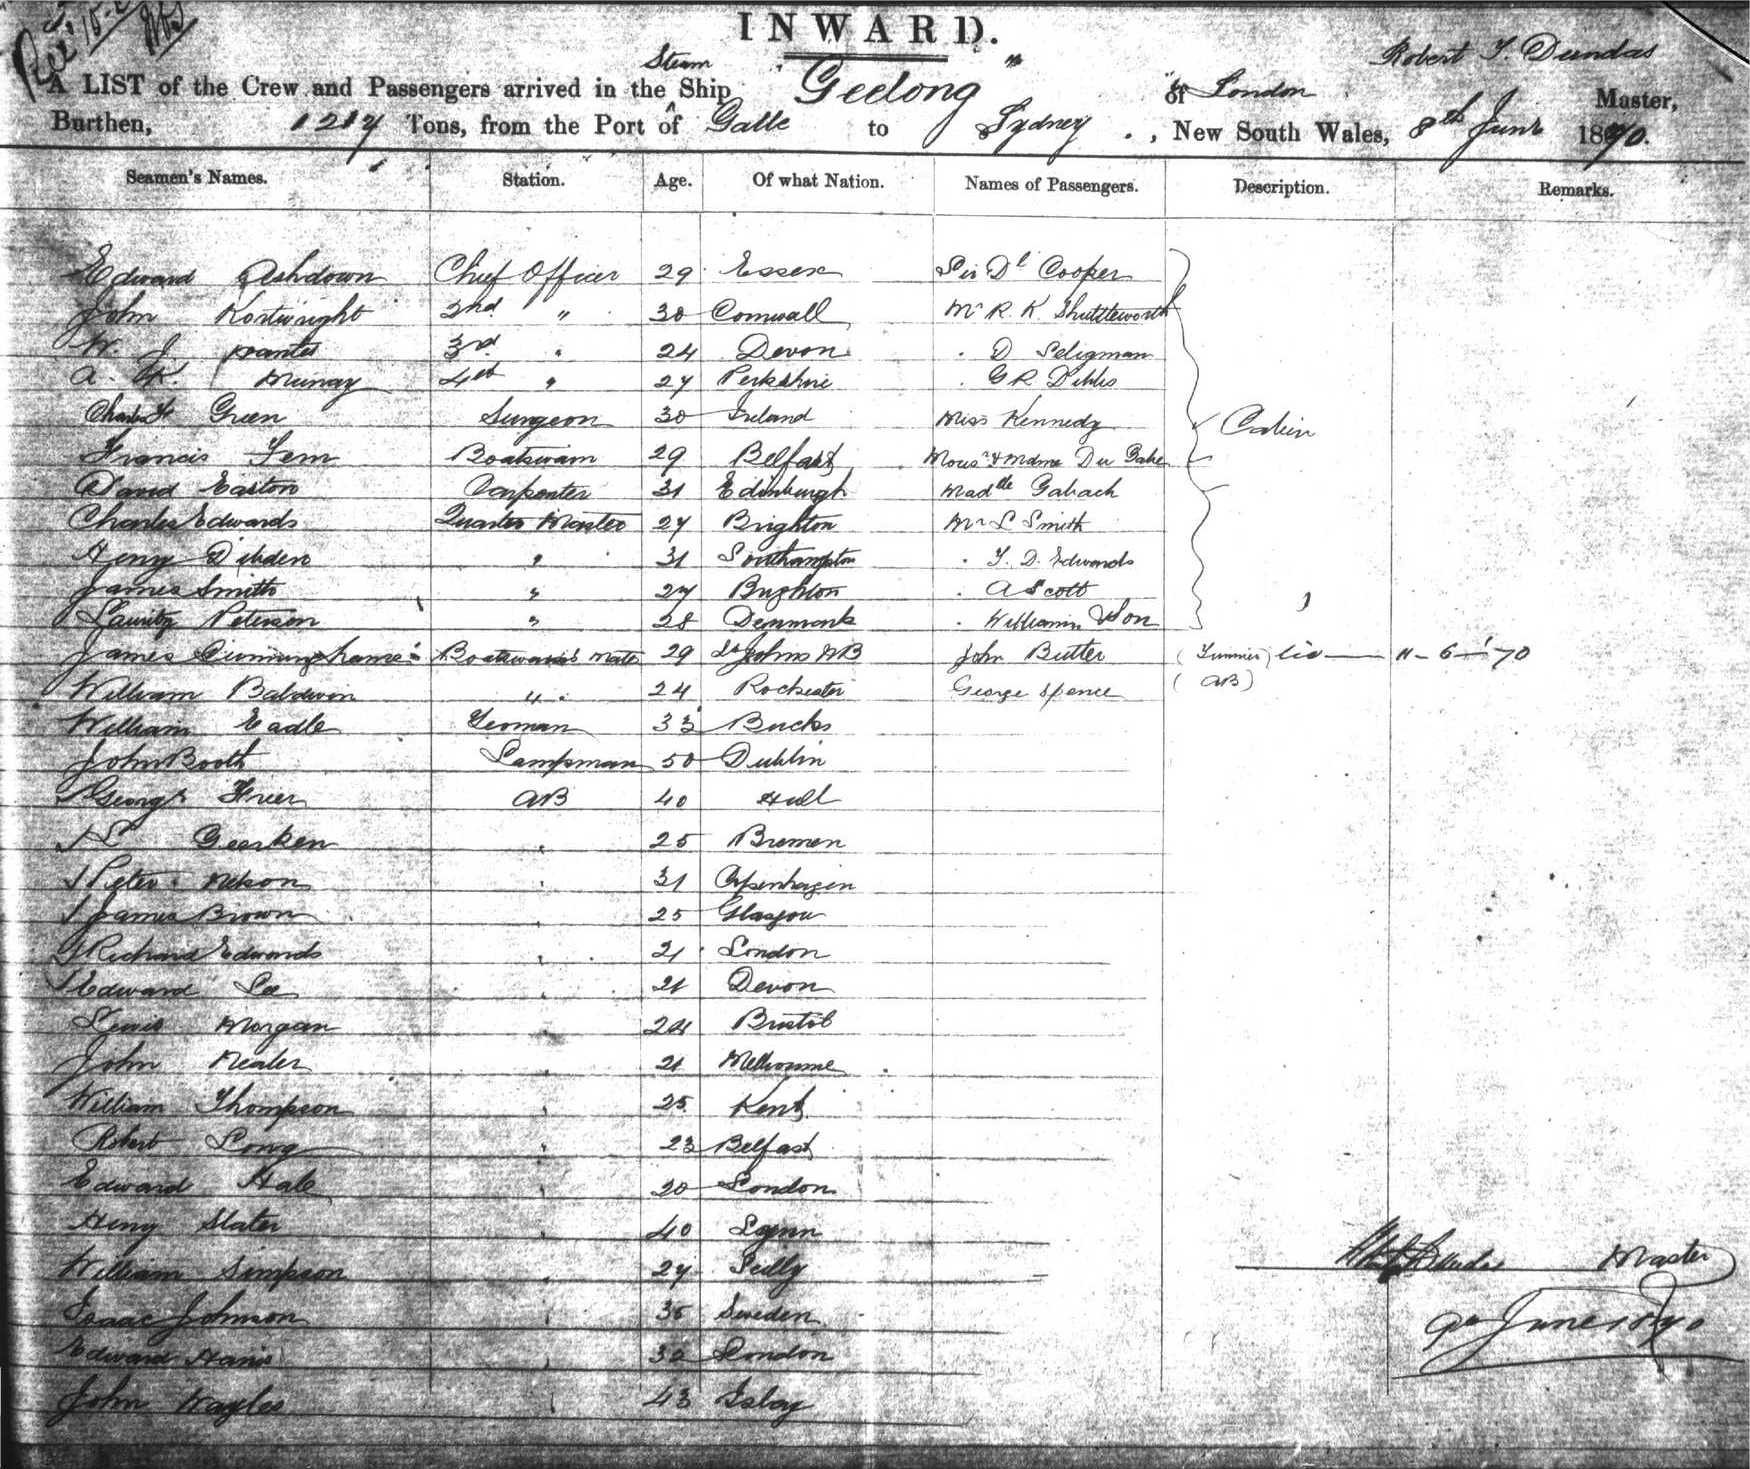 INWARD.
Steam Robert T. Dundas
A LIST of the Crew and Passengers arrived in the Ship "Geelong" of London Master,
Burthen, Tons, from the Port of Galle to Sydney, New South Wales, 8th June 1870.
Seamen's Names. Station. Age. Of what Nation. Names of Passengers. Description. Remarks.
Edward Ashdown Chief Officer 29 Essex Sir Dl Cooper
John Kortwright 2nd " 30 Cornwall Mr R. K. Shuttleworth
W. J. 3rd " 24 Devon " D Seligman
A. K. Murray 4th " 27 Perkshire " G R Dibbs
Charles Green Surgeon 30 Ireland Miss Kennedy Cabin
Francis Fern Boatswain 29 Belfast Mons & Mdme Du
David Easton Carpenter 31 Edinburgh Madlle Gabach
Charles Edwards Quarter Master 27 Brighton Mr S Smith
Henry Dibden " 31 Southampton " T. D. Edwards
James Smith " 27 Brighton " A Scott
Lauritz Peterson " 28 Denmark " Son
James Boatswain's Mate 29 St Johns NB John Butter 11-6-70
William Baldwin " 24 Rochester George Spence (AB)
William Eadle Yeoman 33 Bucks
John Booth Lampsman 50 Dublin
George Frier AB 40 Hull
Geerken " 25 Bremen
Peter Nelson " 31 Copenhagen
James Brown " 25 Glasgow
Richard Edwards " 21 London
Edward Lee " 21 Devon
Lewis Morgan " 24 Bristol
John " 21 Melbourne
William Thompson " 25 Kent
Robert Long " 23 Belfast
Edward Hale " 20 London
Henry Slater " 40 Lynn
William Simpson " 27 Scilly Master
Isaac Johnson " 35 Sweden 9th June 1870
Edward Harris " 32 London
John Wayles " 43 Islay